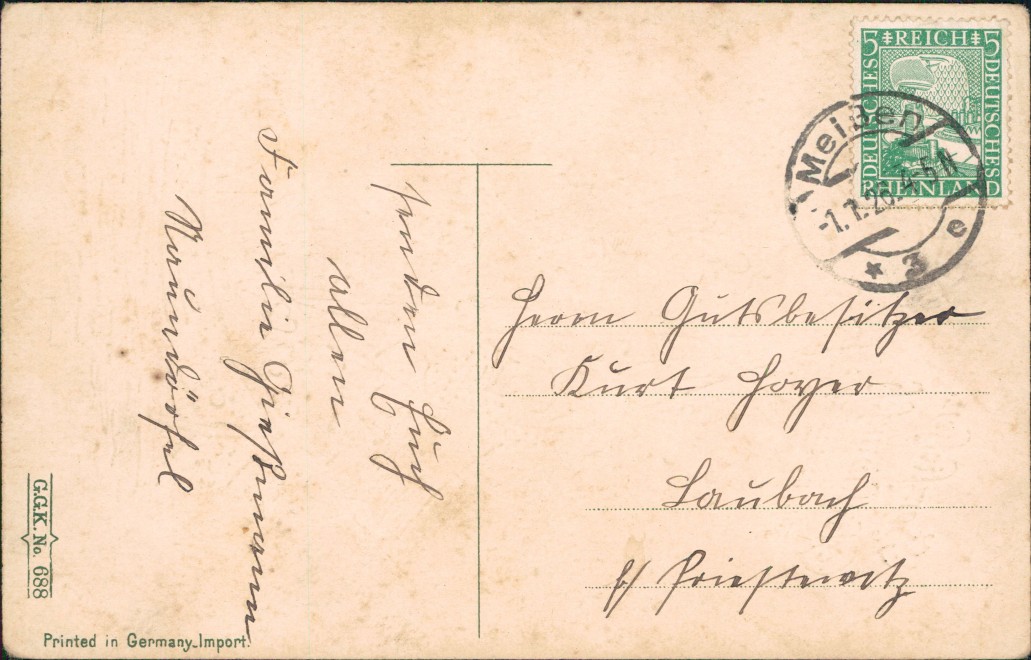 5 REICH 5
DEUTSCHES
DEUTSCHES
RHEINLAND
Meißen
-1.1.26. 4-5 N
* 3 e
senden Euch
allen
Familie Gießmann
Naundörfel
Herrn Gutsbesitzer
Kurt Hoyer
Laubach
b/ Priestewitz
G.G.K. No. 688
Printed in Germany-Import.